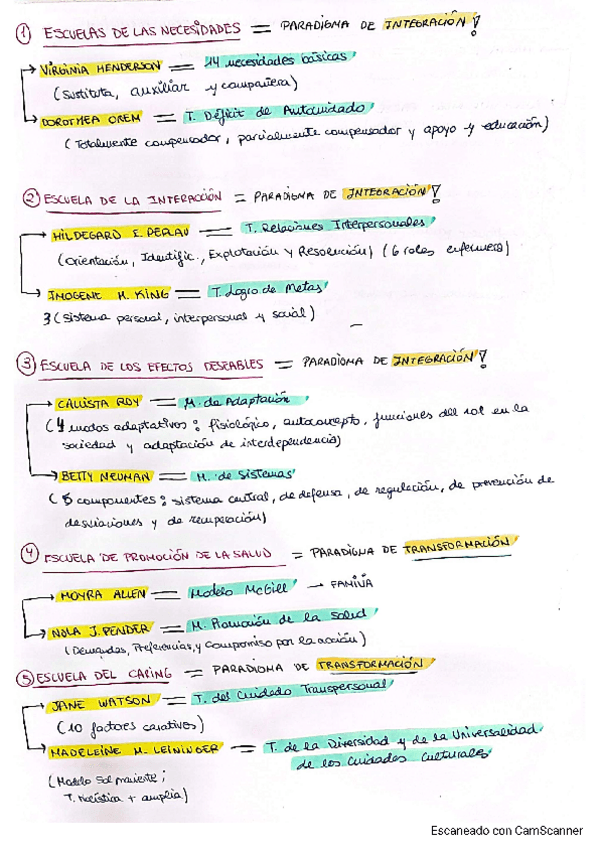 1 ESCUELAS DE LAS NECESIDADES = PARADIGMA DE INTEGRACIÓN!
VIRGINIA HENDERSON = 14 necesidades básicas
(sustituta, auxiliar y compañera)
DOROTHEA OREM = T. Déficit de Autocuidado
(Totalmente compensador, parcialmente compensador y apoyo y educación)
2 ESCUELA DE LA INTERACCIÓN = PARADIGMA DE INTEGRACIÓN!
HILDEGARD E. PEPLAU = T. Relaciones Interpersonales
(Orientación, Identific., Explotación y Resolución) (6 roles enfermera)
IMOGENE M. KING = T. Logro de Metas
3 (sistema personal, interpersonal y social)
3 ESCUELA DE LOS EFECTOS DESEABLES = PARADIGMA DE INTEGRACIÓN!
CALLISTA ROY = M. de Adaptación
(4 modos adaptativos: fisiológico, autoconcepto, funciones del rol en la
sociedad y adaptación de interdependencia)
BETTY NEUMAN = M. de Sistemas
(5 componentes: sistema central, de defensa, de regulación, de prevención de
desviaciones y de recuperación)
4 ESCUELA DE PROMOCIÓN DE LA SALUD = PARADIGMA DE TRANSFORMACIÓN
MOYRA ALLEN = Modelo McGill → FAMILIA
NOLA J. PENDER = M. Promoción de la salud
(Demandas, Preferencias, y compromiso por la acción)
5 ESCUELA DEL CARING = PARADIGMA DE TRANSFORMACIÓN
JANE WATSON = T. del Cuidado Transpersonal
(10 factores carativos)
MADELEINE M. LEININGER = T. de la Diversidad y de la Universalidad
de los cuidados culturales
(Modelo Sol naciente;
T. holística + amplia)
Escaneado con CamScanner